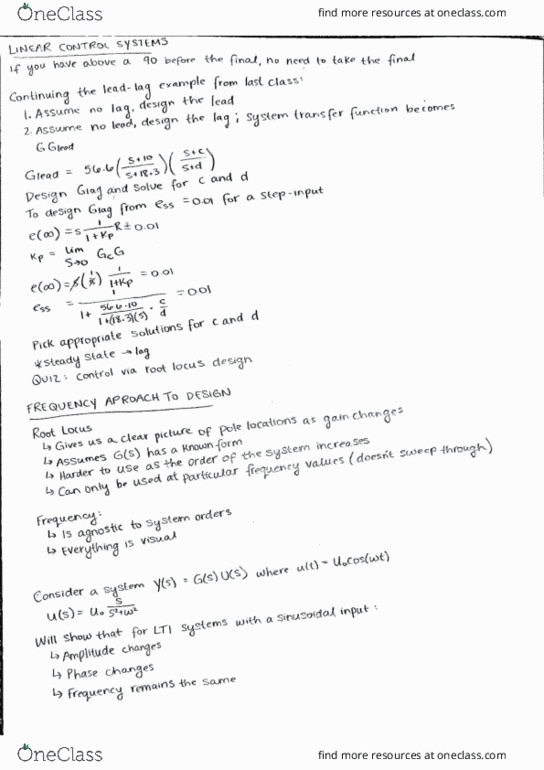 OneClass
find more resources at oneclass.com
LINEAR CONTROL SYSTEMS
If you have above a 90 before the final, no need to take the final
Continuing the lead-lag example from last class:
1. Assume no lag, design the lead
2. Assume no lead, design the lag; system transfer function becomes
G Glead
Glead = 56.6 (s+10 / s+18.3) (s+c / s+d)
Design Glag and solve for c and d
To design Glag from ess = 0.01 for a step-input
e(∞) = s 1/1+Kp R = 0.01
Kp = lim s→0 GcG
e(∞) = s(1/s) 1/1+Kp = 0.01
ess = 1 / 1 + 56.6·10 / 1+(18.3)(5) · c/d = 0.01
Pick appropriate solutions for c and d
*Steady State → lag
QUIZ: control via root locus design
FREQUENCY APROACH TO DESIGN
Root Locus
↳ Gives us a clear picture of pole locations as gain changes
↳ Assumes G(s) has a known form
↳ Harder to use as the order of the system increases
↳ Can only be used at particular frequency values (doesn't sweep through)
Frequency:
↳ Is agnostic to system orders
↳ Everything is visual
Consider a system Y(s) = G(s)U(s) where u(t) = U₀cos(wt)
U(s) = U₀ s / s²+w²
Will show that for LTI systems with a sinusoidal input:
↳ Amplitude changes
↳ Phase changes
↳ Frequency remains the same
OneClass
find more resources at oneclass.com